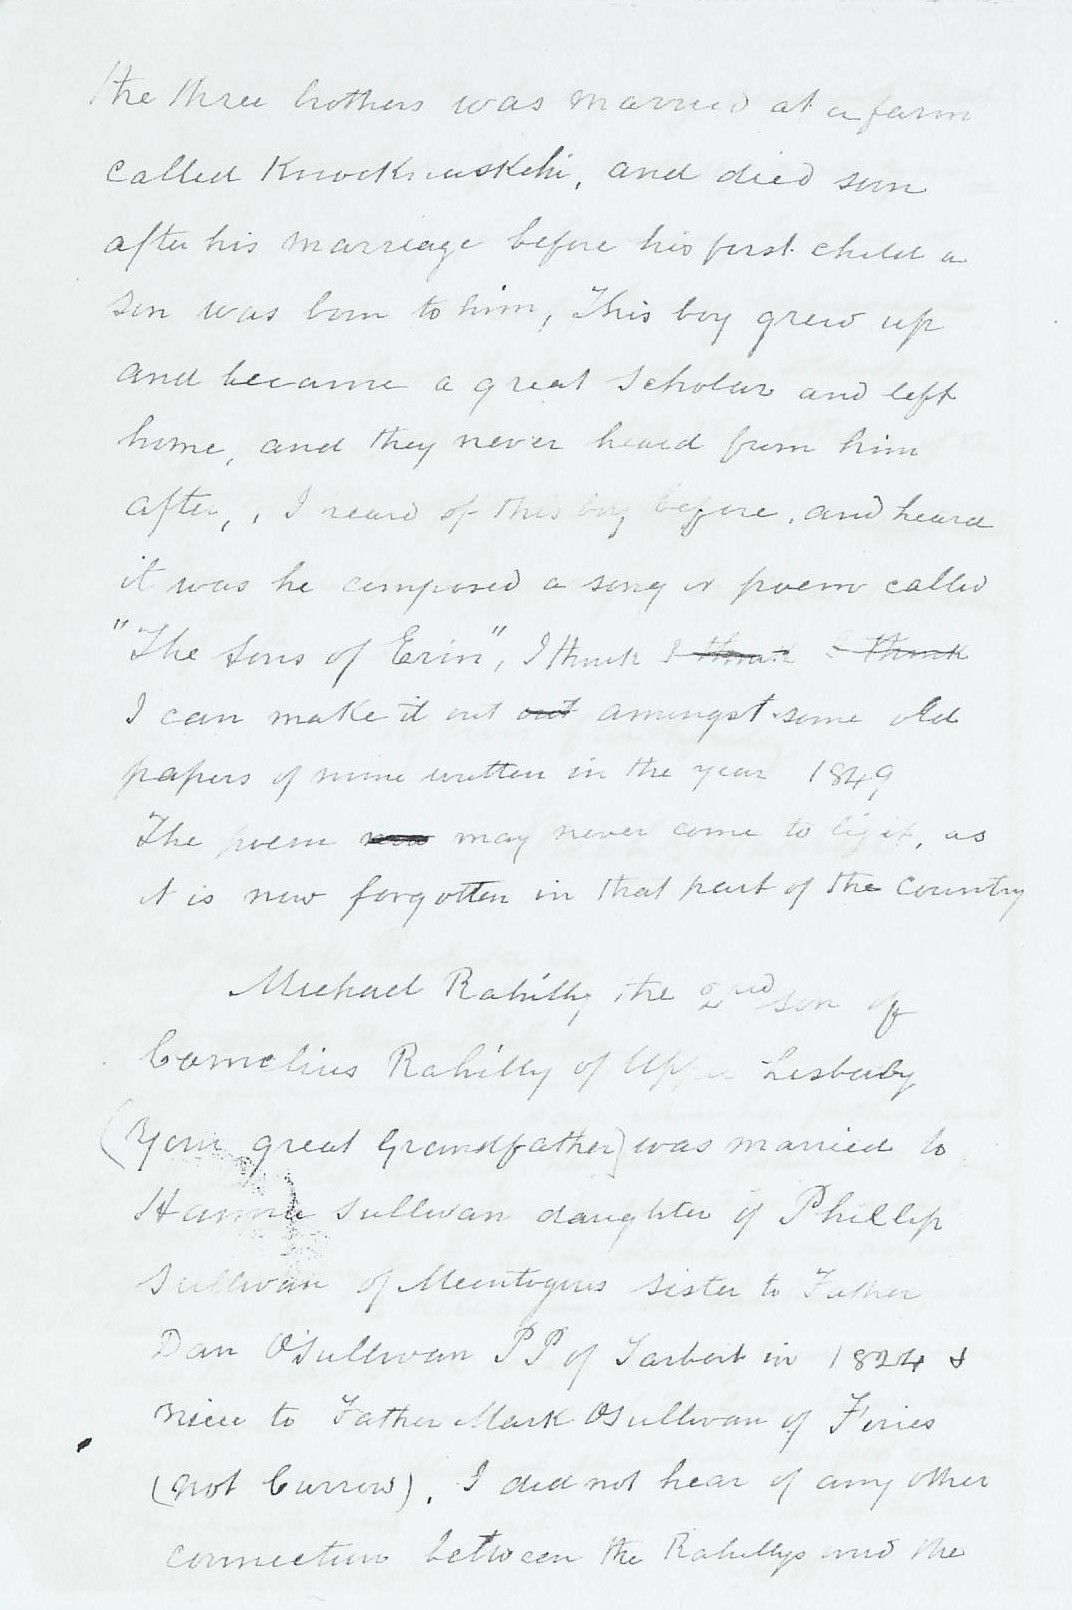 the three brothers was married at a farm
called Knocknaskehi, and died soon
after his marriage before his first child a
son was born to him, This boy grew up
and became a great scholar and left
home, and they never heard from him
after, , I heard of this boy before, and heard
it was he composed a song or poem called
"The Sons of Erin", I think I think I think
I can make it out out amongst some old
papers of mine written in the year 1849
The poem may never come to light, as
it is now forgotten in that part of the Country
Michael Rahilly the 2nd son of
Cornelius Rahilly of Upper Lisbaby
(Your great Grandfather) was married to
Hanna Sullivan daughter of Phillip
Sullivan of Meentogues sister to Father
Dan O'Sullivan PP of Tarbert in 1824 &
niece to Father Mark OSullivan of Firies
(not Currow). I did not hear of any other
connection between the Rahillys and the